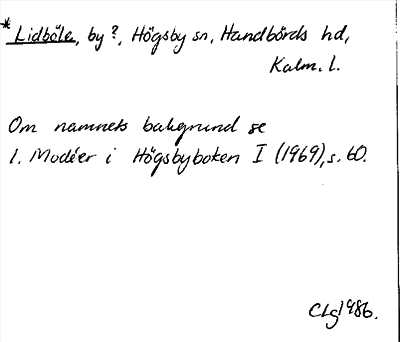 * Lidböle, by?, Högsby sn, Handbörds hd,
Kalm. l.
Om namnets bakgrund se
I. Modéer i Högsbyboken I (1969), s. 60.
CLg 1986.